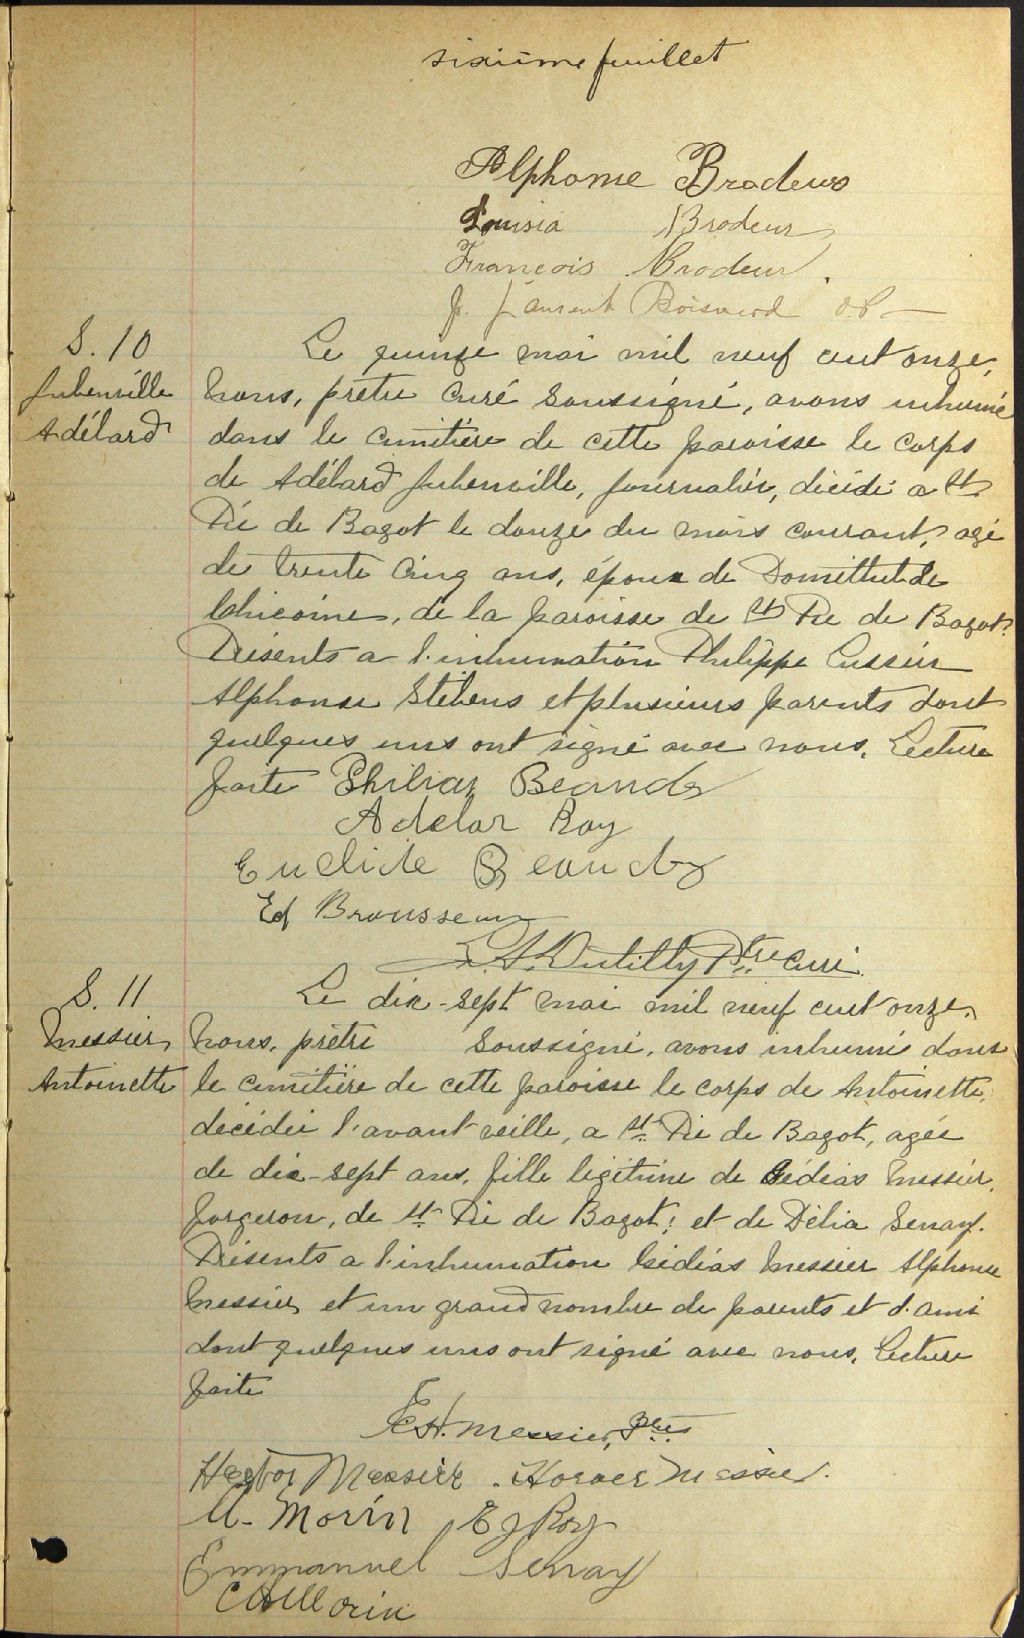 sixième feuillet
Alphonse Brodeur
Louisia Brodeur
François Brodeur.
J. Laurent Boisverd
S. 10
Jubenville
Adélard
Le quinze mai mil neuf cent onze,
Nous, prêtre curé soussigné, avons inhumé
dans le cimitière de cette paroisse le corps
de Adélard Jubenville, journalier, décédé a St
Pie de Bagot le douze du mois courant, agé
de trente cinq ans, époux de Domithilde
Chicoine, de la paroisse de St Pie de Bagot.
Présents a l'inhumation Philippe Lussier
Alphonse Stebens et plusieurs parents dont
quelques uns ont signé avec nous. Lecture
faite Philias Beaudry
Adelar Roy
Euclide Beaudry
Ed Brousseau
L. A. Dutilly Ptre curé.
S. 11
Messier
Antoinette
Le dix-sept mai mil neuf cent onze,
Nous, prêtre soussigné, avons inhumé dans
le cimitière de cette paroisse le corps de Antoinette,
décédée l'avant veille, a St. Pie de Bagot, agée
de dix-sept ans, fille légitime de Gédias Messier,
forgeron, de St. Pie de Bagot; et de Délia Senay.
Présents a l'inhumation Gédias Messier Alphonse
Messier et un grand nombre de parents et d'ami
dont quelques uns ont signé avec nous, Lecture
faite
E. H. Messier, Ptre
Hector Messier. Horace Messier.
A. Morin E J Roy
Emmanuel Senay
C A Morin